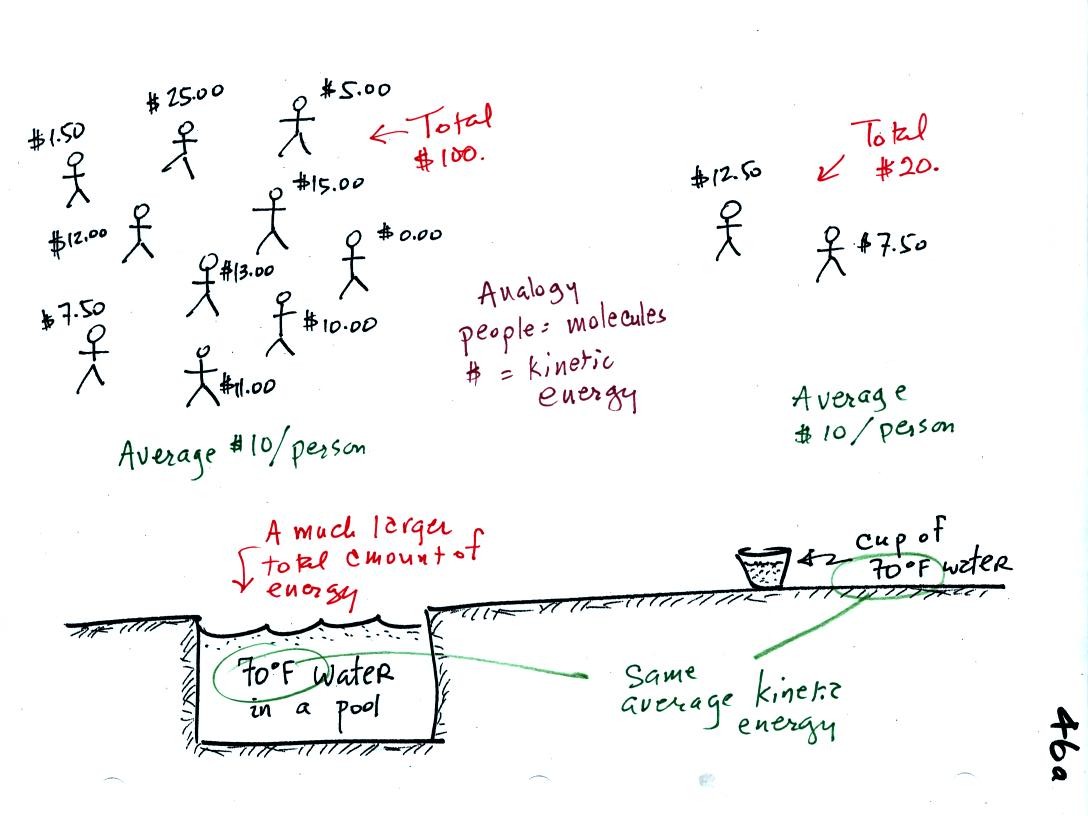 $25.00
$5.00
$1.50
← Total
$100.
$15.00
$12.00
$0.00
$13.00
$7.50
$10.00
$11.00
Average $10/person
Total
$20.
$12.50
$7.50
Analogy
people = molecules
$ = kinetic
energy
Average
$10/person
A much larger
total amount of
energy
cup of
70°F water
70°F water
in a pool
Same
average kinetic
energy
46a